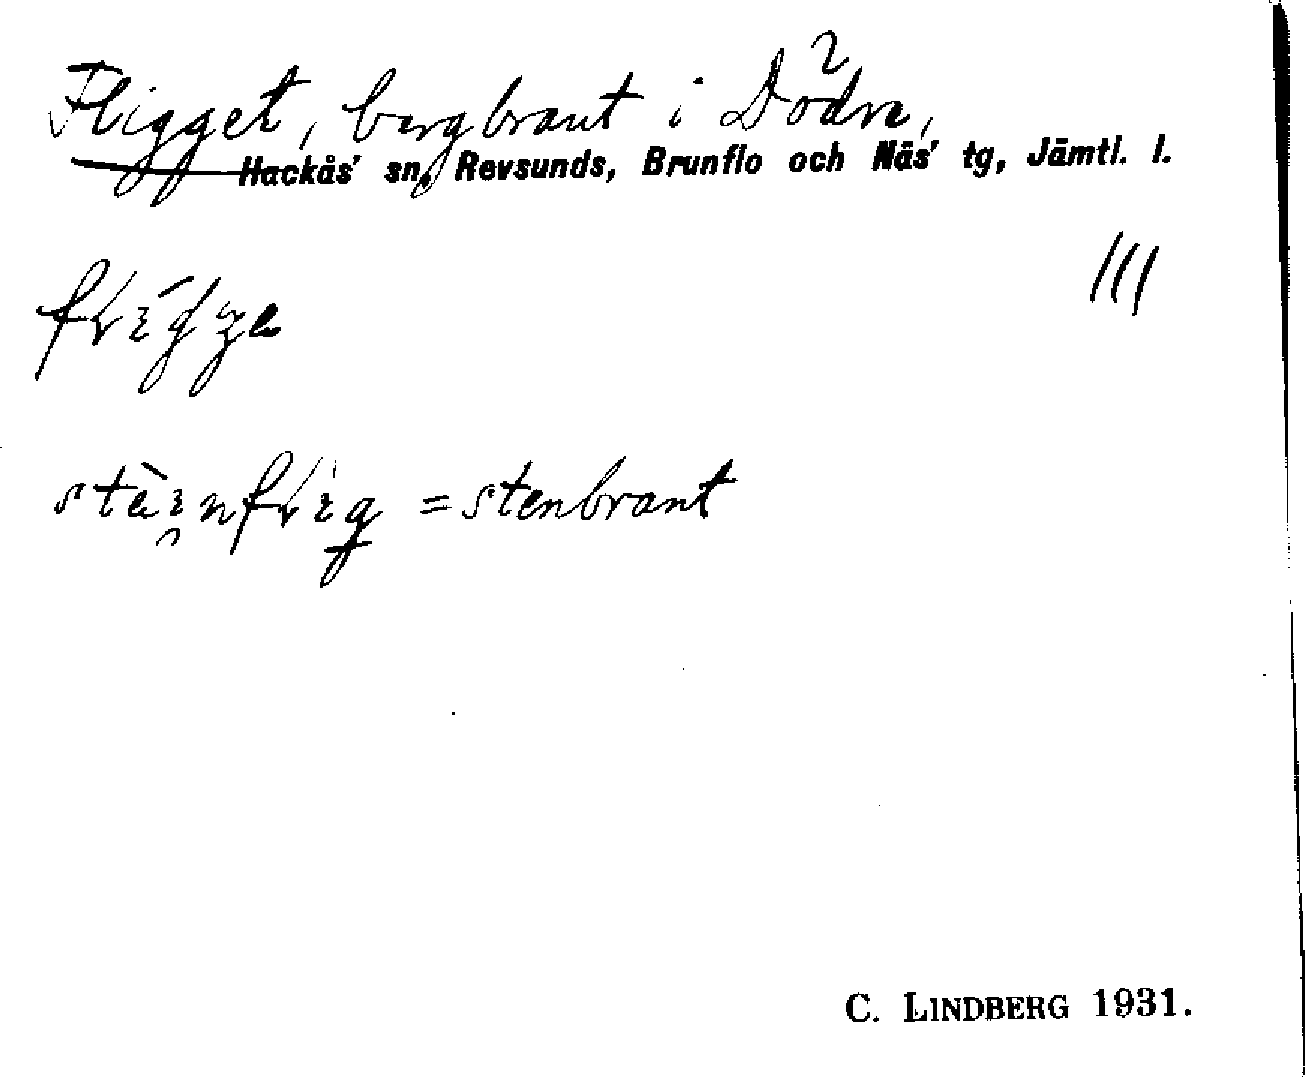 Fligget, bergbrant i Dödre,
Hackås' sn, Revsunds, Brunflo och Näs' tg, Jämtl. l.
///
= stenbrant
C. LINDBERG 1931.